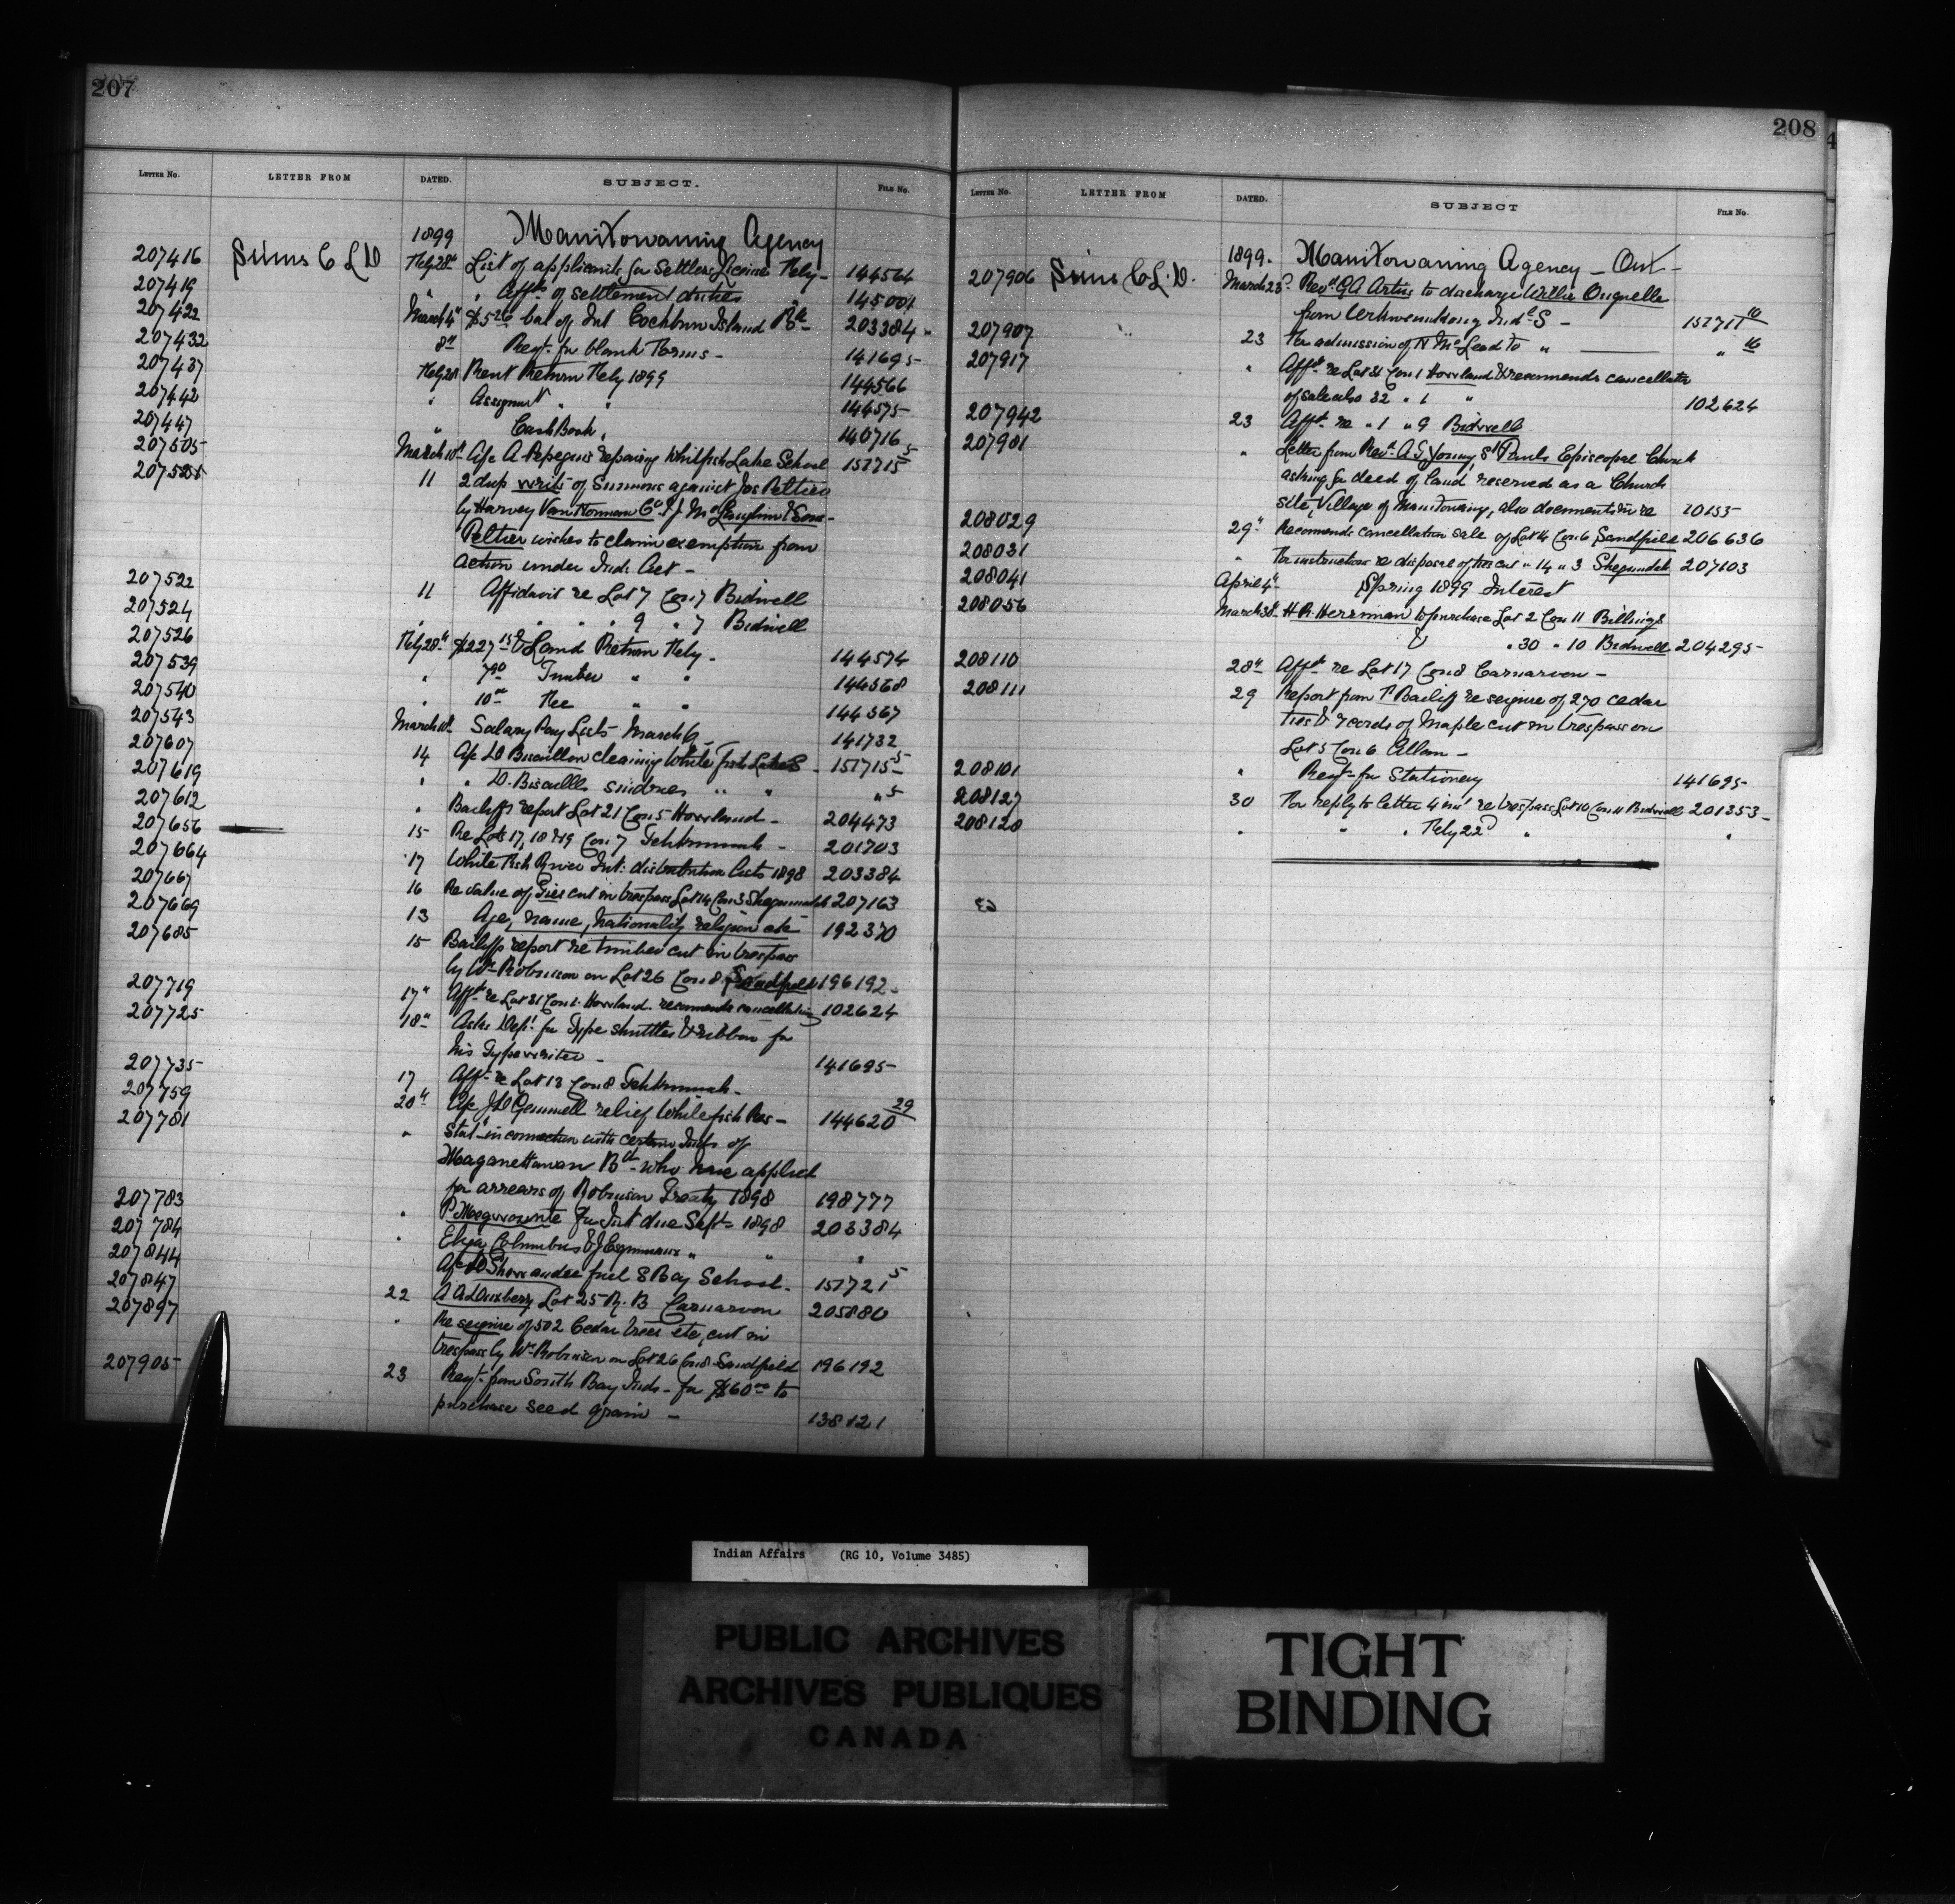 207
LETTER NO. LETTER FROM DATED. SUBJECT. FILE NO.
1899 Manitowaning Agency
207416 Sims C L D Feby 28th List of applicants for Settlers License Feby - 144564
207419 " " Affts of settlement duties 145001
207422 March 4th $5.26 bal of Int Cockburn Island Bd 203384
207432 8th Reqt. for blank Forms - 141695
207437 Feby 28 Rent Return Feby 1899 144566
207442 " Assignmt " " 144575
207447 " Cash Book " 140716
207505 March 10th A/c A Pepegins repairing Whitfish Lake School 151715 5
11 2 dup writs of Summons against Jos Peltier
by Harvey Van Norman Co. & J McLaughlin & Sons -
Peltier wishes to claim exemption from
action under Ind. Act -
207522 11 Affidavit re Lot 7 Con 7 Bidwell
207524 " " " " 9 " 7 Bidwell
207526 Feby 28th $227.15 Land Return Feby - 144574
207539 " 7.90 Timber " " 144568
207540 " 10.00 Fee " " 144567
207543 March 10th Salary Pay Lists March 9 - 141732
207607 14 A/c D Bisaillon cleaning White Fish Lake S - 151715 5
207619 " " D. Bisaillo sundries " " " 5
207612 " Bailiffs report Lot 21 Con 5 Howland - 204473
207656 15 Re Lots 17, 18 & 19 Con 7 Tehkummah - 201703
207664 17 White Fish River Int: distribution lists 1898 203384
207667 16 Re value of Ties cut in trespass Lot 14 Con 3 Sheguiandah 207163
207669 13 Age, name, nationality religion etc 192370
207685 15 Bailiffs report re timber cut in trespass
by Wm Robinson on Lot 26 Con 8 Sandfield 196192 -
207719 17th Afft re Lot 31 Con 1 Howland. recommends cancellation 102624
207725 18th Asks Dept. for Type shuttles & ribbon for
his Typewriter - 141695
207735 17 Afft. re Lot 13 Con 8 Tehkummah -
207759 20th A/c J D Gemmell relief Whitefish Res - 144620 29
207781 " Statt in connection with certain Inds of
Maganettawan Bd - who have applied
for arrears of Robinson Treaty 1898 198777
207783 " P. for Int due Sept - 1898 203384
207784 " Eliza Columbus & J " " "
207844 A/c fuel S Bay School - 151721 5
207847 22 Lot 25 R. B Carnarvon 205880
207897 " Re seizure of 502 Cedar trees etc, cut in
trespass by Wm Robinson on Lot 26 Con 8 Sandfield 196192
207905 23 Reqt. from South Bay Inds - for $60.00 to
purchase seed grain - 138121
208
LETTER NO. LETTER FROM DATED. SUBJECT FILE NO.
1899. Manitowaning Agency - Ont -
207906 Sims C. L. D. March 23d Revd. G A Artus to discharge Willie
from Indl S - 151711 10
207907 " 23 For admission of N McLeod to " " 16
207917 " Afft. re Lot 31 Con 1 Howland & recommends cancellation
of sale also 32 " 1 " 102624
207942 23 Afft. re " 1 " 9 Bidwell
207981 " Letter from Revd. A G Young St Pauls Episcopal Church
asking for deed of land reserved as a Church
site, Village of Manitowaning, also documents in re 10155
208029 29th Recommends cancellation sale of Lot 14 Con 6 Sandfield 206636
208031 " For instructions re disposal of ties cut " 14 " 3 Sheguiandah 207103
208041 April 4th Spring 1899 Interest
208056 March 30 H R Herriman to purchase Lot 2 Con 11 Billings
& " 30 " 10 Bidwell 204295
208110 28th Afft. re Lot 17 Con 8 Carnarvon -
208111 29 Report from P Bailiff re seizure of 270 cedar
ties & cords of Maple cut in trespass on
Lot 5 Con 6 Allan -
208101 " Reqt. for Stationery 141695
208127 30 For reply to letter 4 inst re trespass Lot 10 Con 11 Bidwell 201353 -
208128 " " " Feby 22d " "
Indian Affairs (RG 10, Volume 3485)
PUBLIC ARCHIVES
ARCHIVES PUBLIQUES
CANADA
TIGHT
BINDING